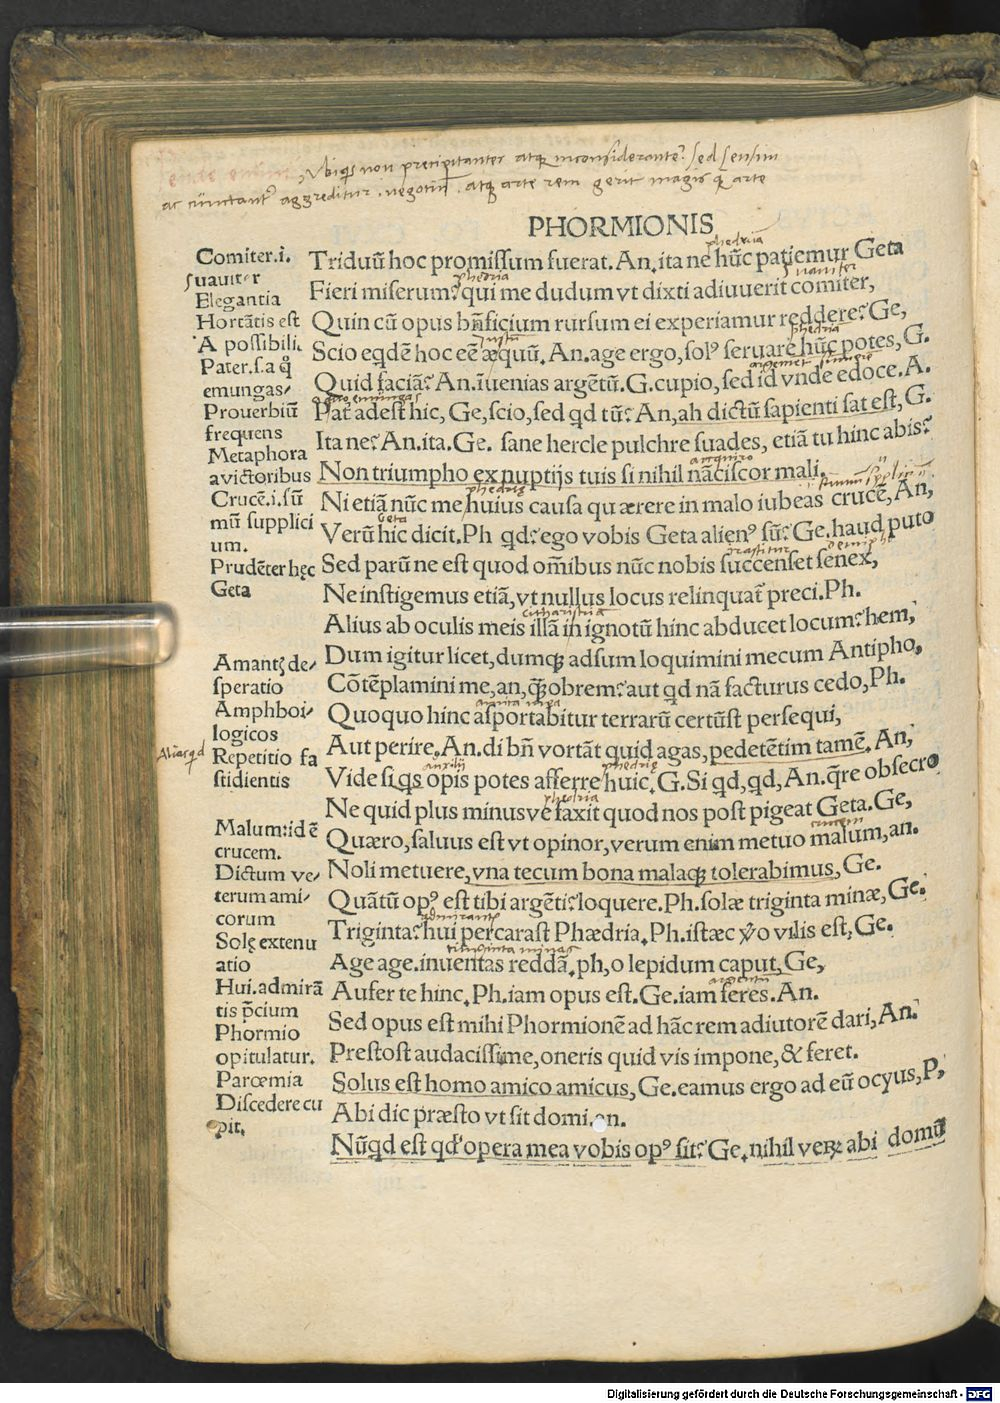 Ubi quis non precipitanter atque inconsiderante? sed sensim
ac cunctanter aggreditur negotium. atque arte rem gerit magis quam arte
PHORMIONIS
Comiter.i.
suauiter
Elegantia
Hortātis est
A possibili.
Pater.s.a q̊
emungas/
Prouerbiū
frequens
Metaphora
a victoribus
Crucē.i.sū
mū supplici
um.
Prudēter hęc
Geta
Amantꝭ de/
speratio
Amphboi/
logicos
Repetitio fa
stidientis
Malum:id ē
crucem.
Dictum ve/
terum ami/
corum
Solę extenu
atio
Hui.admirā
tis p̄cium
Phormio
opitulatur.
Parœmia
Discedere cu
pit.
phedriā
Triduū hoc promissum fuerat. An. ita ne hūc patiemur Geta
phedria suauiter
Fieri miserum? qui me dudum vt dixti adiuuerit comiter,
Quin cū opus bn̄ficium rursum ei experiamur reddere? Ge,
iustū phedria
Scio eqdē hoc eē æquū. An. age ergo, solꝰ seruare hūc potes, G.
Quid faciā? An. īuenias argētū. G. cupio, sed id vnde edoce. A.
a quo emungas
Pat̄ adest hic, Ge, scio, sed qd tū? An, ah dictū sapienti sat est, G.
Ita ne? An. ita. Ge. sane hercle pulchre suades, etiā tu hinc abis?
acquiro
Non triumpho ex nuptijs tuis si nihil nāciscor mali.
phedrię
Ni etiā nūc me huius causa quærere in malo iubeas crucē, An,
geta
Verū hic dicit. Ph qd? ego vobis Geta alienꝰ sū? Ge. haud puto
Sed parū ne est quod om̄ibus nūc nobis succenset senex,
Ne instigemus etiā, vt nullus locus relinquat̄ preci. Ph.
citharistriā
Alius ab oculis meis illā in ignotū hinc abducet locum? hem,
Dum igitur licet, dumqꝫ adsum loquimini mecum Antipho,
Cōtēplamini me, an, qꝫ̄obrem? aut qd nā facturus cedo, Ph.
amica mea
Quoquo hinc asportabitur terrarū certūst persequi,
Aut perire. An. di bn̄ vortāt quid agas, pedetētim tamē. An,
auxilij phedrię
Vide si qs opis potes afferre huic. G. Si qd, qd, An. q̄re obsecro
phedria
Ne quid plus minusve faxit quod nos post pigeat Geta. Ge,
crucem
Quæro, saluus est vt opinor, verum enim metuo malum, an.
Noli metuere, vna tecum bona malaqꝫ tolerabimus, Ge.
Quātū opꝰ est tibi argēti? loquere. Ph. solæ triginta minæ, Ge.
admirantis
Triginta? hui percarast Phædria. Ph. istæc v̊o vilis est, Ge.
triginta minas
Age age. inuentas reddā. ph, o lepidum caput, Ge,
argentū
Aufer te hinc. Ph. iam opus est. Ge. iam feres. An.
Sed opus est mihi Phormionē ad hāc rem adiutorē dari, An.
Prestost audacissime, oneris quid vis impone, & feret.
Solus est homo amico amicus, Ge. eamus ergo ad eū ocyus, P,
Abi dic præsto vt sit domi. an.
Nūqd est qd opera mea vobis opꝰ sit? Ge. nihil veꝝ abi domū
Digitalisierung gefördert durch die Deutsche Forschungsgemeinschaft - DFG